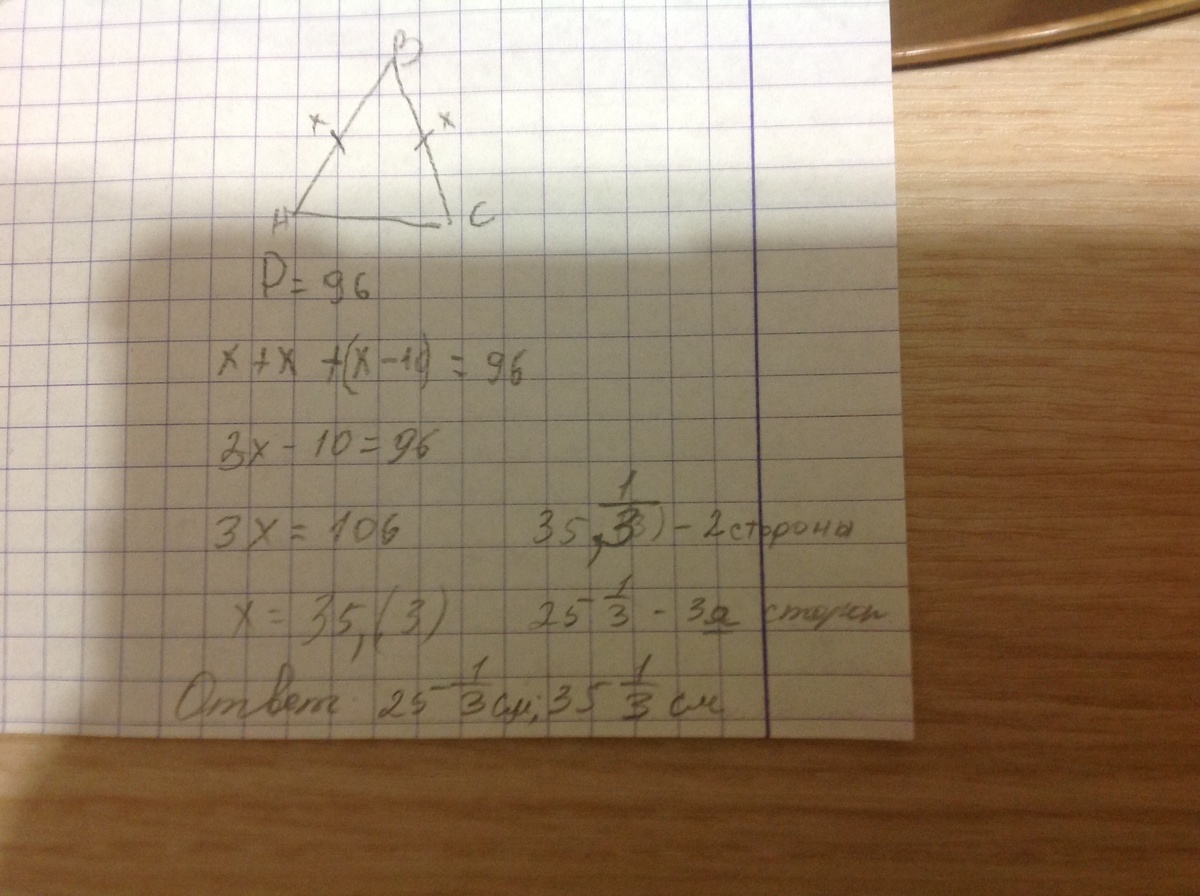 B
x x
A C
P = 96
x + x + (x - 10) = 96
3x - 10 = 96
3x = 106
35 1/3 - 2 стороны
x = 35,(3)
25 1/3 - 3я сторон
Ответ 25 1/3 см; 35 1/3 см